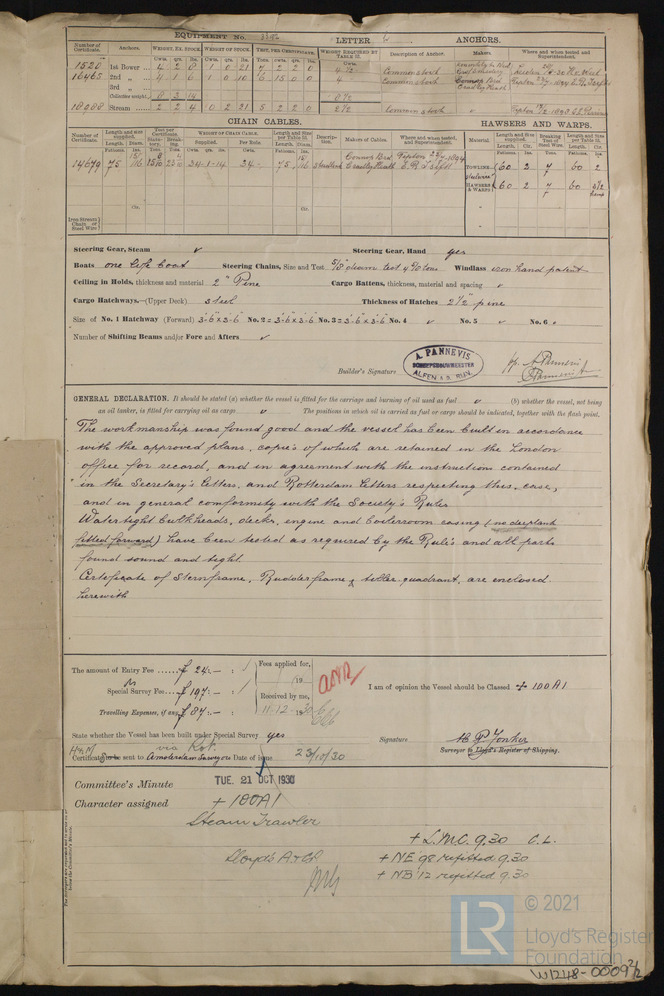 EQUIPMENT No.
LETTER
ANCHORS.
Number of Certificate.
Anchors.
WEIGHT, EX. STOCK.
WEIGHT OF STOCK.
TEST, PER CERTIFICATE.
WEIGHT REQUIRED BY TABLE 22.
Description of Anchor.
Makers.
Where and when tested and Superintendent.
Cwts. qrs. lbs. Cwt. qrs. lbs. Tons. cwt. qrs. lbs. Cwts.
1520 1st Bower 4 2 0 1 0 21 7 2 2 0 4½
16465 2nd „ 4 1 6 1 0 10 6 15 0 0 4 Common stock
3rd „
Collective weight 8 3 14 8½
18988 Stream 2 2 4 0 2 21 5 2 2 0 2½ common stock
CHAIN CABLES.
HAWSERS AND WARPS.
Number of Certificate.
Length and size supplied.
Test per Certificate.
WEIGHT OF CHAIN CABLE.
Length and Size per Table 22.
Description.
Makers of Cables.
Where and when tested, and Superintendent.
Material.
Length and Size supplied.
Breaking Test of Steel Wire.
Length and Size per Table 22.
Length. Diam. Statutory. Breaking. Supplied. Per Rule. Length. Diam.
14679 75 15/16 34-1-14 34.- 75 15/16 Studlink
TOWLINE steelwire 60 2 7 60 2
HAWSERS & WARPS 60 2 7 60
Iron Stream Chain or Steel Wire
Steering Gear, Steam v Steering Gear, Hand yes
Boats one life boat Steering Chains, Size and Test Windlass iron hand patent
Ceiling in Holds, thickness and material 2" Pine Cargo Battens, thickness, material and spacing v
Cargo Hatchways.—(Upper Deck) steel Thickness of Hatches 2½" pine
Size of No. 1 Hatchway (Forward) 3'-6"x3'-6" No. 2 = 3'-6"x3'-6" No. 3 = 3'-6"x3'-6" No. 4 v No. 5 v No. 6 v
Number of Shifting Beams and/or Fore and Afters v
A. PANNEVIS
SCHEEPSBOUWMEESTER
ALFEN A.D. RIJN.
Builder's Signature A Pannevis
GENERAL DECLARATION. It should be stated (a) whether the vessel is fitted for the carriage and burning of oil used as fuel v (b) whether the vessel, not being
an oil tanker, is fitted for carrying oil as cargo v The positions in which oil is carried as fuel or cargo should be indicated, together with the flash point.
The workmanship was found good and the vessel has been built in accordance
with the approved plans, copie's of which are retained in the London
office for record, and in agreement with the instruction contained
in the Secretary's letters, and Rotterdam letters respecting this case,
and in general comformity with the Society's Rules
Watertight bulkheads, decks, engine and boilerroom casing (no deeptank
fitted forward) have been tested as required by the Rule's and all parts
found sound and tight.
Certeficate of Sternframe, Rudderframe & tiller quadrant, are enclosed
herewith
The amount of Entry Fee ...... ƒ 24:- :
Special Survey Fee.... ƒ 197:- :
Travelling Expenses, if any ƒ 87:- :
Fees applied for,
19
Received by me,
11.12 1930
I am of opinion the Vessel should be Classed + 100A1
State whether the Vessel has been built under Special Survey yes
Signature H P. Jonker
Surveyor to Lloyd's Register of Shipping.
via Rot.
Certificate to be sent to Amsterdam Surveyors Date of issue 23/10/30
Committee's Minute TUE. 21 OCT 1930
Character assigned + 100A1
Steam Trawler
Lloyd's A & CP
+ L.M.C. 9.30 C.L.
+ NE '98 refitted 9.30
+ NB '12 refitted 9.30
© 2021
LR
Lloyd's Register
Foundation
W1248-0009 2/2